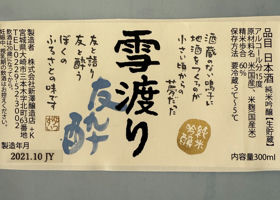 品目 日本酒 純米醸【生貯蔵】
アルコール分15度
原材料名 米(国産)、米麹(国産米)
精米歩合 60%
保存方法 要冷蔵-5℃〜5℃
内容量300ml
酒蔵のない鳴子に
地酒をつくるのが
小さい頃から
夢だった
純米吟醸
雪渡り
友酔
友と語り
友と酔う
ぼくの
ふるさとの味です
製造者 株式会社新澤醸造店 +K
宮城県大崎市三本木字北町63番地
TEL0229-52-3002
製造年月
2021.10 JY